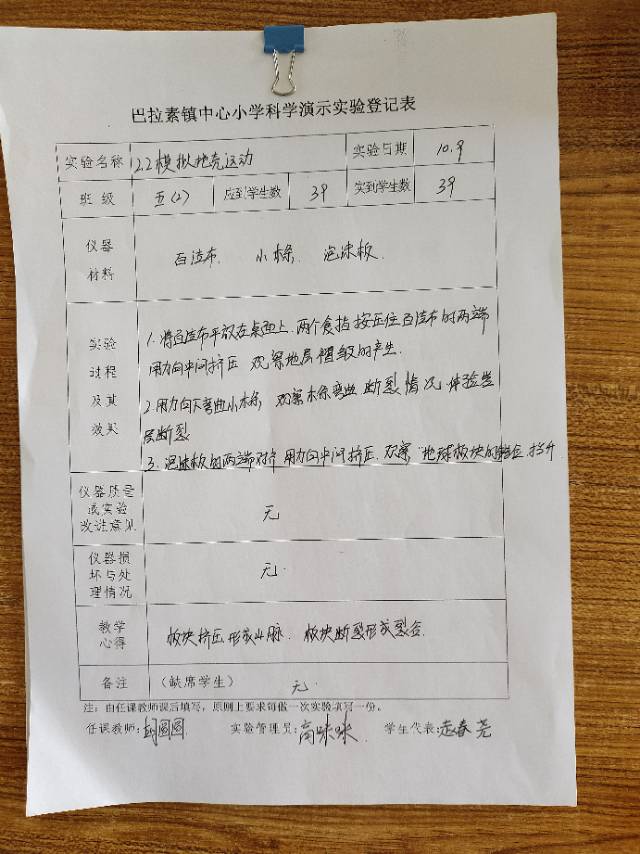 巴拉素镇中心小学科学演示实验登记表
实验名称 2.2模拟地壳运动 实验日期 10.9
班级 五(2) 应到学生数 39 实到学生数 39
仪器材料 百洁布、小木条、泡沫板
实验过程及其效果
1.将百洁布平放在桌面上,两个食指按压住百洁布的两端
用力向中间挤压 观察地层褶皱的产生.
2.用力向下弯曲小木条, 观察木条弯曲断裂情况,体验岩
层断裂
3.泡沫板的两端对齐 用力向中间挤压 观察 地球板块的 抬升
仪器质量或实验改进意见 无
仪器损坏与处理情况 无.
教学心得 板块挤压形成山脉. 板块断裂形成裂谷.
备注 (缺席学生) 无.
注:由任课教师课后填写,原则上要求每做一次实验填写一份。
任课教师: 圆圆 实验管理员:高 学生代表: 春尧